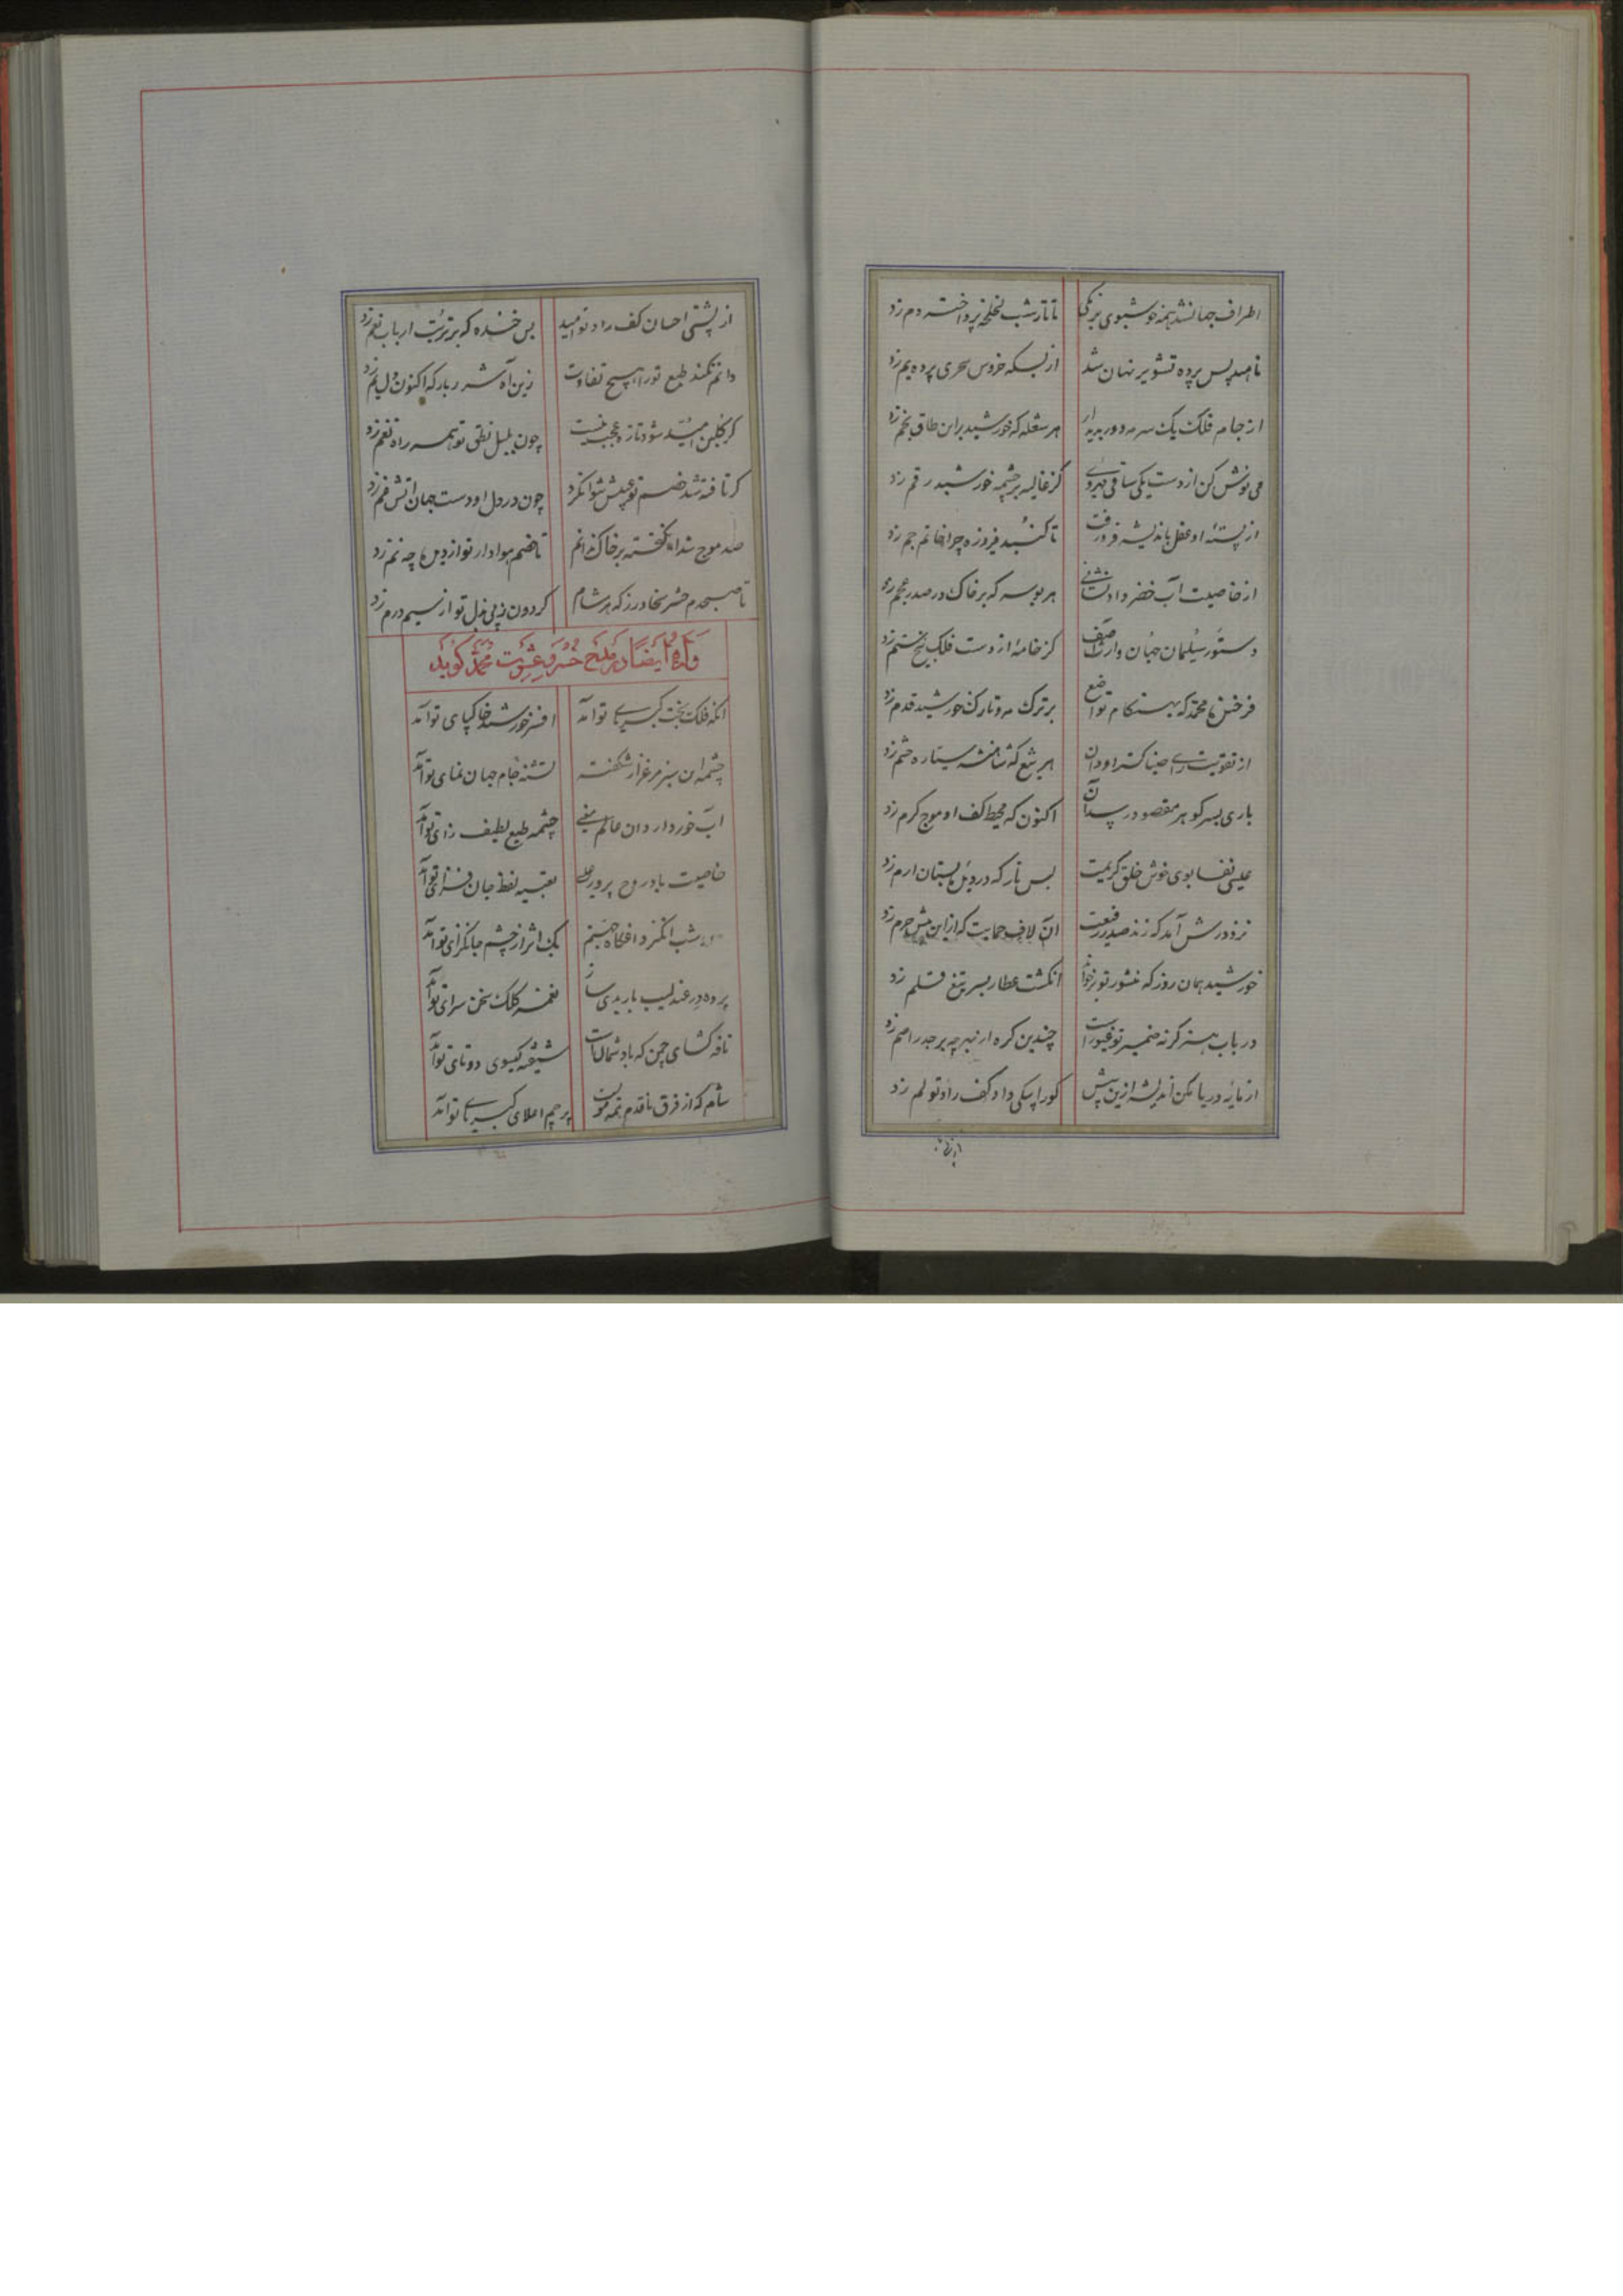 اطراف جهان شد همه خوشبوی ز نکهت تا تار شب لخلخه پرداخته دم زد
ناهید پس پرده تشویر نهان شد از بسکه خروس سحری پرده بم زد
از جام فلک یک سر مه دور پدیدار هر شعله که خورشید براین طاق بخم زد
می نوش کن از دست یکی ساقی مهروی کز غالیه بر چشمه خورشید رقم زد
از پسته او عقل باندیشه فرو رفت تا گنبد فیروزه چرا خاتم جم زد
از خاصیت آب خضر داد نشانی هر بوسه که بر خاک در صدر عجم زد
دستور سلیمان جهان وارث آصف کز خامه از دست فلک تیغ ستم زد
فرخنده محمد که بهنگام تواضع بر ترک مه و تارک خورشید قدم زد
از تقویت رای ضیا گستر او دان هر تیغ که شاهنشه سیاره حشم زد
باری بسر گوهر مقصود رسید آن اکنون که محیط کف او موج کرم زد
عیسی نفسا بوی خوش خلق کریمت بس نار که در دل بستان ارم زد
نزد درش آمد که زند صدر رفیعت آن لاف حمایت که ازاین پیش حرم زد
خورشید همان روز که منشور تو برخواند انگشت عطارد بسر تیغ قلم زد
در باب هنر گرنه ضمیر تو غیوراست چندین گره از بهر چه بر جدر اصم زد
از مایه دریا مکن اندیشه ازین پیش کورا بیکی داد کف راد تو لم زد
از پشتی
از پشتی احسان کف راد تو امید بس خنده که بر تربت ارباب نعم زد
دانم نکند طبع تورا هیچ تفاوت زین آه شرربار که اکنون دل یم زد
گر گلبن امید شود تازه عجب نیست چون بلبل نطقی تو همه راه نغم زد
گر تافته شد خصم تو عیبش نتوان کرد چون در دل او دست جهان آتش غم زد
صد موج بلا انگیخته بر خاک ندانم تا خصم هوادار تو از دیده چه نم زد
تا صبحدم حشر سخا ورز که هر شام گردون ز پی بذل تو از سیم درم زد
وله ایضا در مدح خسرو عشرت محمد گوید
آنکه فلک تخت کبریای تو آمد افسر خورشید خاکپای تو آمد
چشمه آن سبز مرغزار شکفته تشنه جام جهان نمای تو آمد
آب خور دار دان عالم معنی چشمه طبع لطیف زای تو آمد
خاصیت باد روح پرور عیسی تعبیه لفظ جان فزای تو آمد
شب انگیز و یک اثر از خشم جانگزای تو آمد
پرده در عندلیب باربدی ساز نغمه کلک سخن سرای تو آمد
نافه گشای چمن که باد شمال است شیفته گیسوی دوتای تو آمد
شام که از فرق تا قدم همه مویست پرچم اعلای کبریای تو آمد